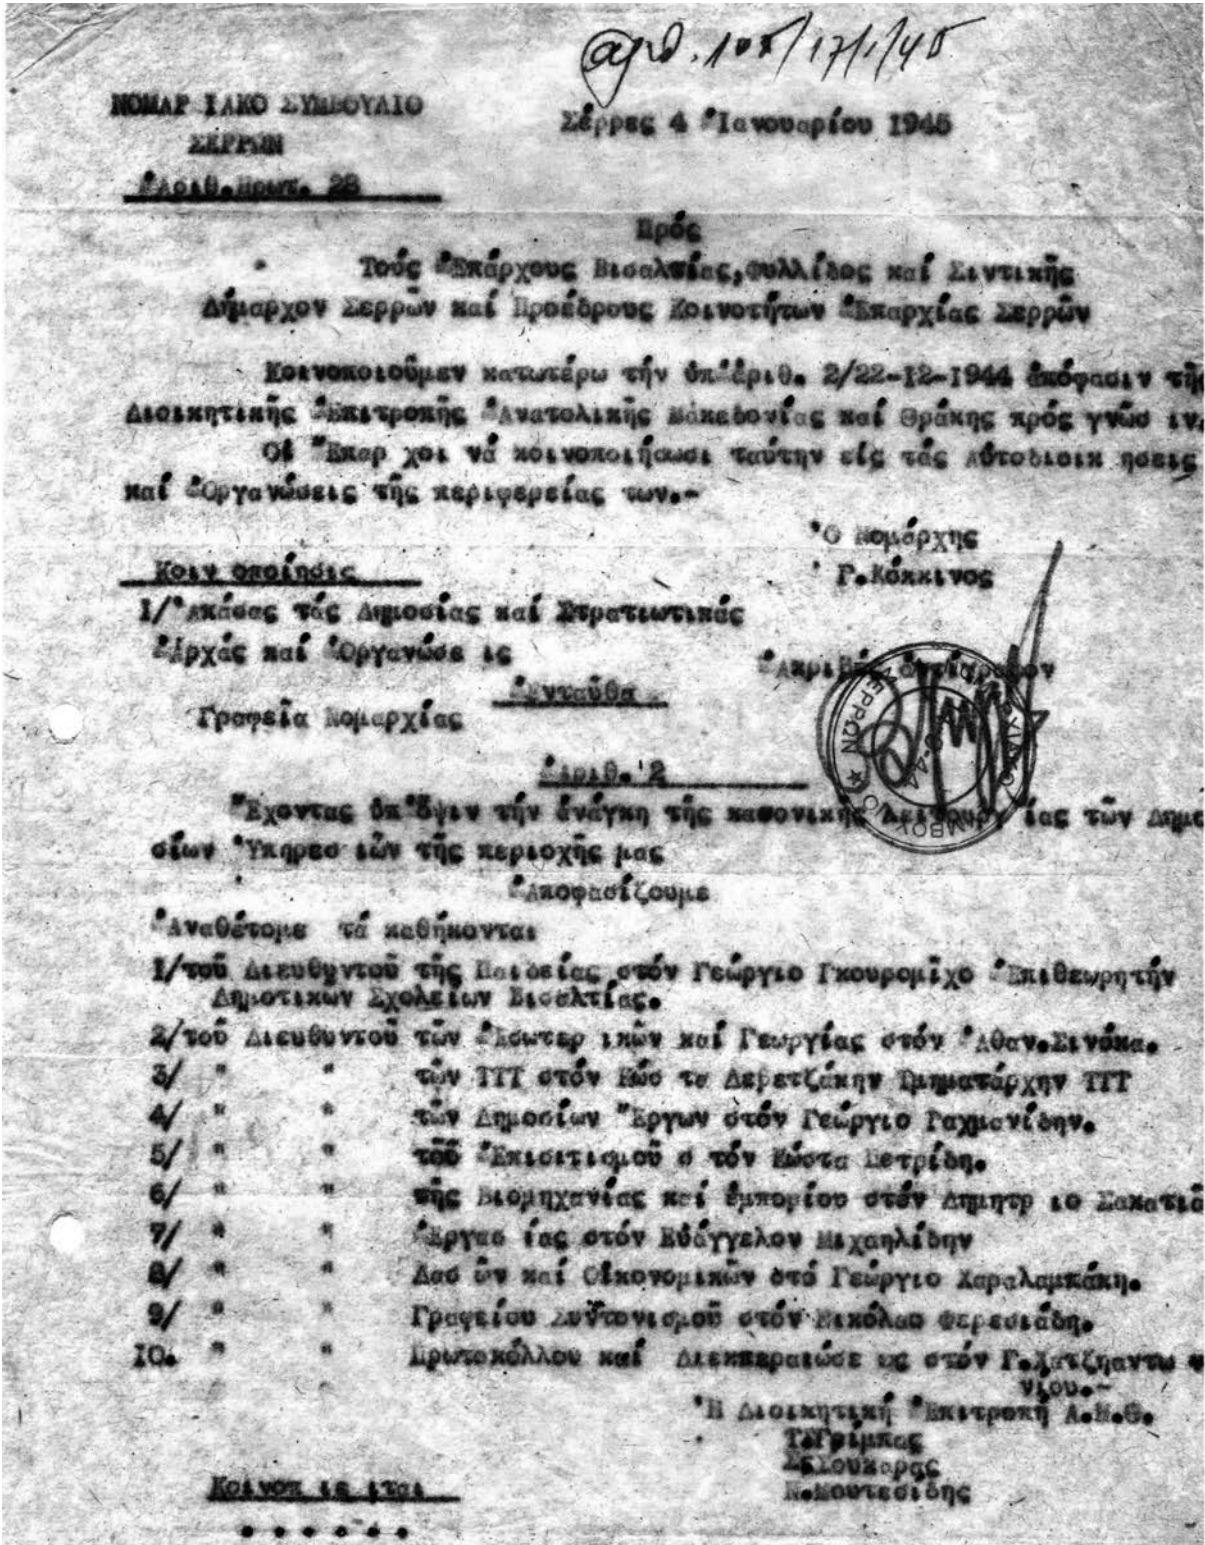 αριθ. 105/17/1/45
ΝΟΜΑΡ ΙΑΚΟ ΣΥΜΒΟΥΛΙΟ
ΣΕΡΡΩΝ
Ἀριθ.Πρωτ. 28
Σέρρες 4 Ἰανουαρίου 1945
Πρός
Τούς Ἐπάρχους Βισαλτίας,Φυλλίδος καί Σιντικῆς
Δήμαρχον Σερρῶν καί Προέδρους Κοινοτήτων Ἐπαρχίας Σερρῶν
Κοινοποιοῦμεν κατωτέρω τήν ὑπ'ἀριθ. 2/22-12-1944 ἀπόφασιν τῆς
Διοικητικῆς Ἐπιτροπῆς Ἀνατολικῆς Μακεδονίας καί Θράκης πρός γνῶσ ιν.
Οἱ Ἐπαρ χοι νά κοινοποιήσωσι ταύτην εἰς τάς Αὐτοδιοικ ησεις
καί Ὀργανώσεις τῆς περιφερείας των.-
Ὁ Νομάρχης
Γ.Κόκκινος
Κοιν οποίησις
1/Ἁπάσας τάς Δημοσίας καί Στρατιωτικάς
Ἀρχάς καί Ὀργανώσε ις
Ἐνταῦθα
Γραφεῖα Νομαρχίας
Ἀκριβές ἀντίγραφον
ΣΕΡΡΩΝ
Ἀριθ. 2
Ἔχοντας ὑπ'ὄψιν τήν ἀνάγκη τῆς κανονικῆς λειτουργ ίας τῶν Δημο
σίων Ὑπηρεσ ιῶν τῆς περιοχῆς μας
Ἀποφασίζουμε
Ἀναθέτομε τά καθήκοντα:
1/τοῦ Διευθυντοῦ τῆς Παιδείας στόν Γεώργιο Γκουρομίχο Ἐπιθεωρητήν
Δημοτικων Σχολείων Βισαλτίας.
2/τοῦ Διευθυντοῦ τῶν Ἐσωτερ ικῶν καί Γεωργίας στόν Ἀθαν.Σινόκα.
3/ " " τῶν ΤΤΤ στόν Κώσ τα Δεβετζάκην Τμηματάρχην ΤΤΤ
4/ " " τῶν Δημοσίων Ἔργων στόν Γεώργιο Ραχμανίδην.
5/ " " τοῦ Ἐπισιτισμοῦ σ τόν Κώστα Πετρίδη.
6/ " " τῆς Βιομηχανίας καί ἐμπορίου στόν Δημητρ ιο Σακατιᾶ
7/ " " Ἐργασ ίας στόν Εὐάγγελον Μιχαηλίδην
8/ " " Δασ ῶν καί Οἰκονομικῶν στό Γεώργιο Χαραλαμπάκη.
9/ " " Γραφείου Συντονισμοῦ στόν Νικόλαο Φερεσιάδη.
10. " " Πρωτοκόλλου καί Διεκπεραιώσε ως στόν Γ.Χατζηαντω
νίου.-
Ἡ Διοικητική Ἐπιτροπή Α.Μ.Θ.
Τ.Γρίμπας
Σ.Σουκαρας
Ν.Μουτεσίδης
Κοινοπ ιε ιται
• • • • • •